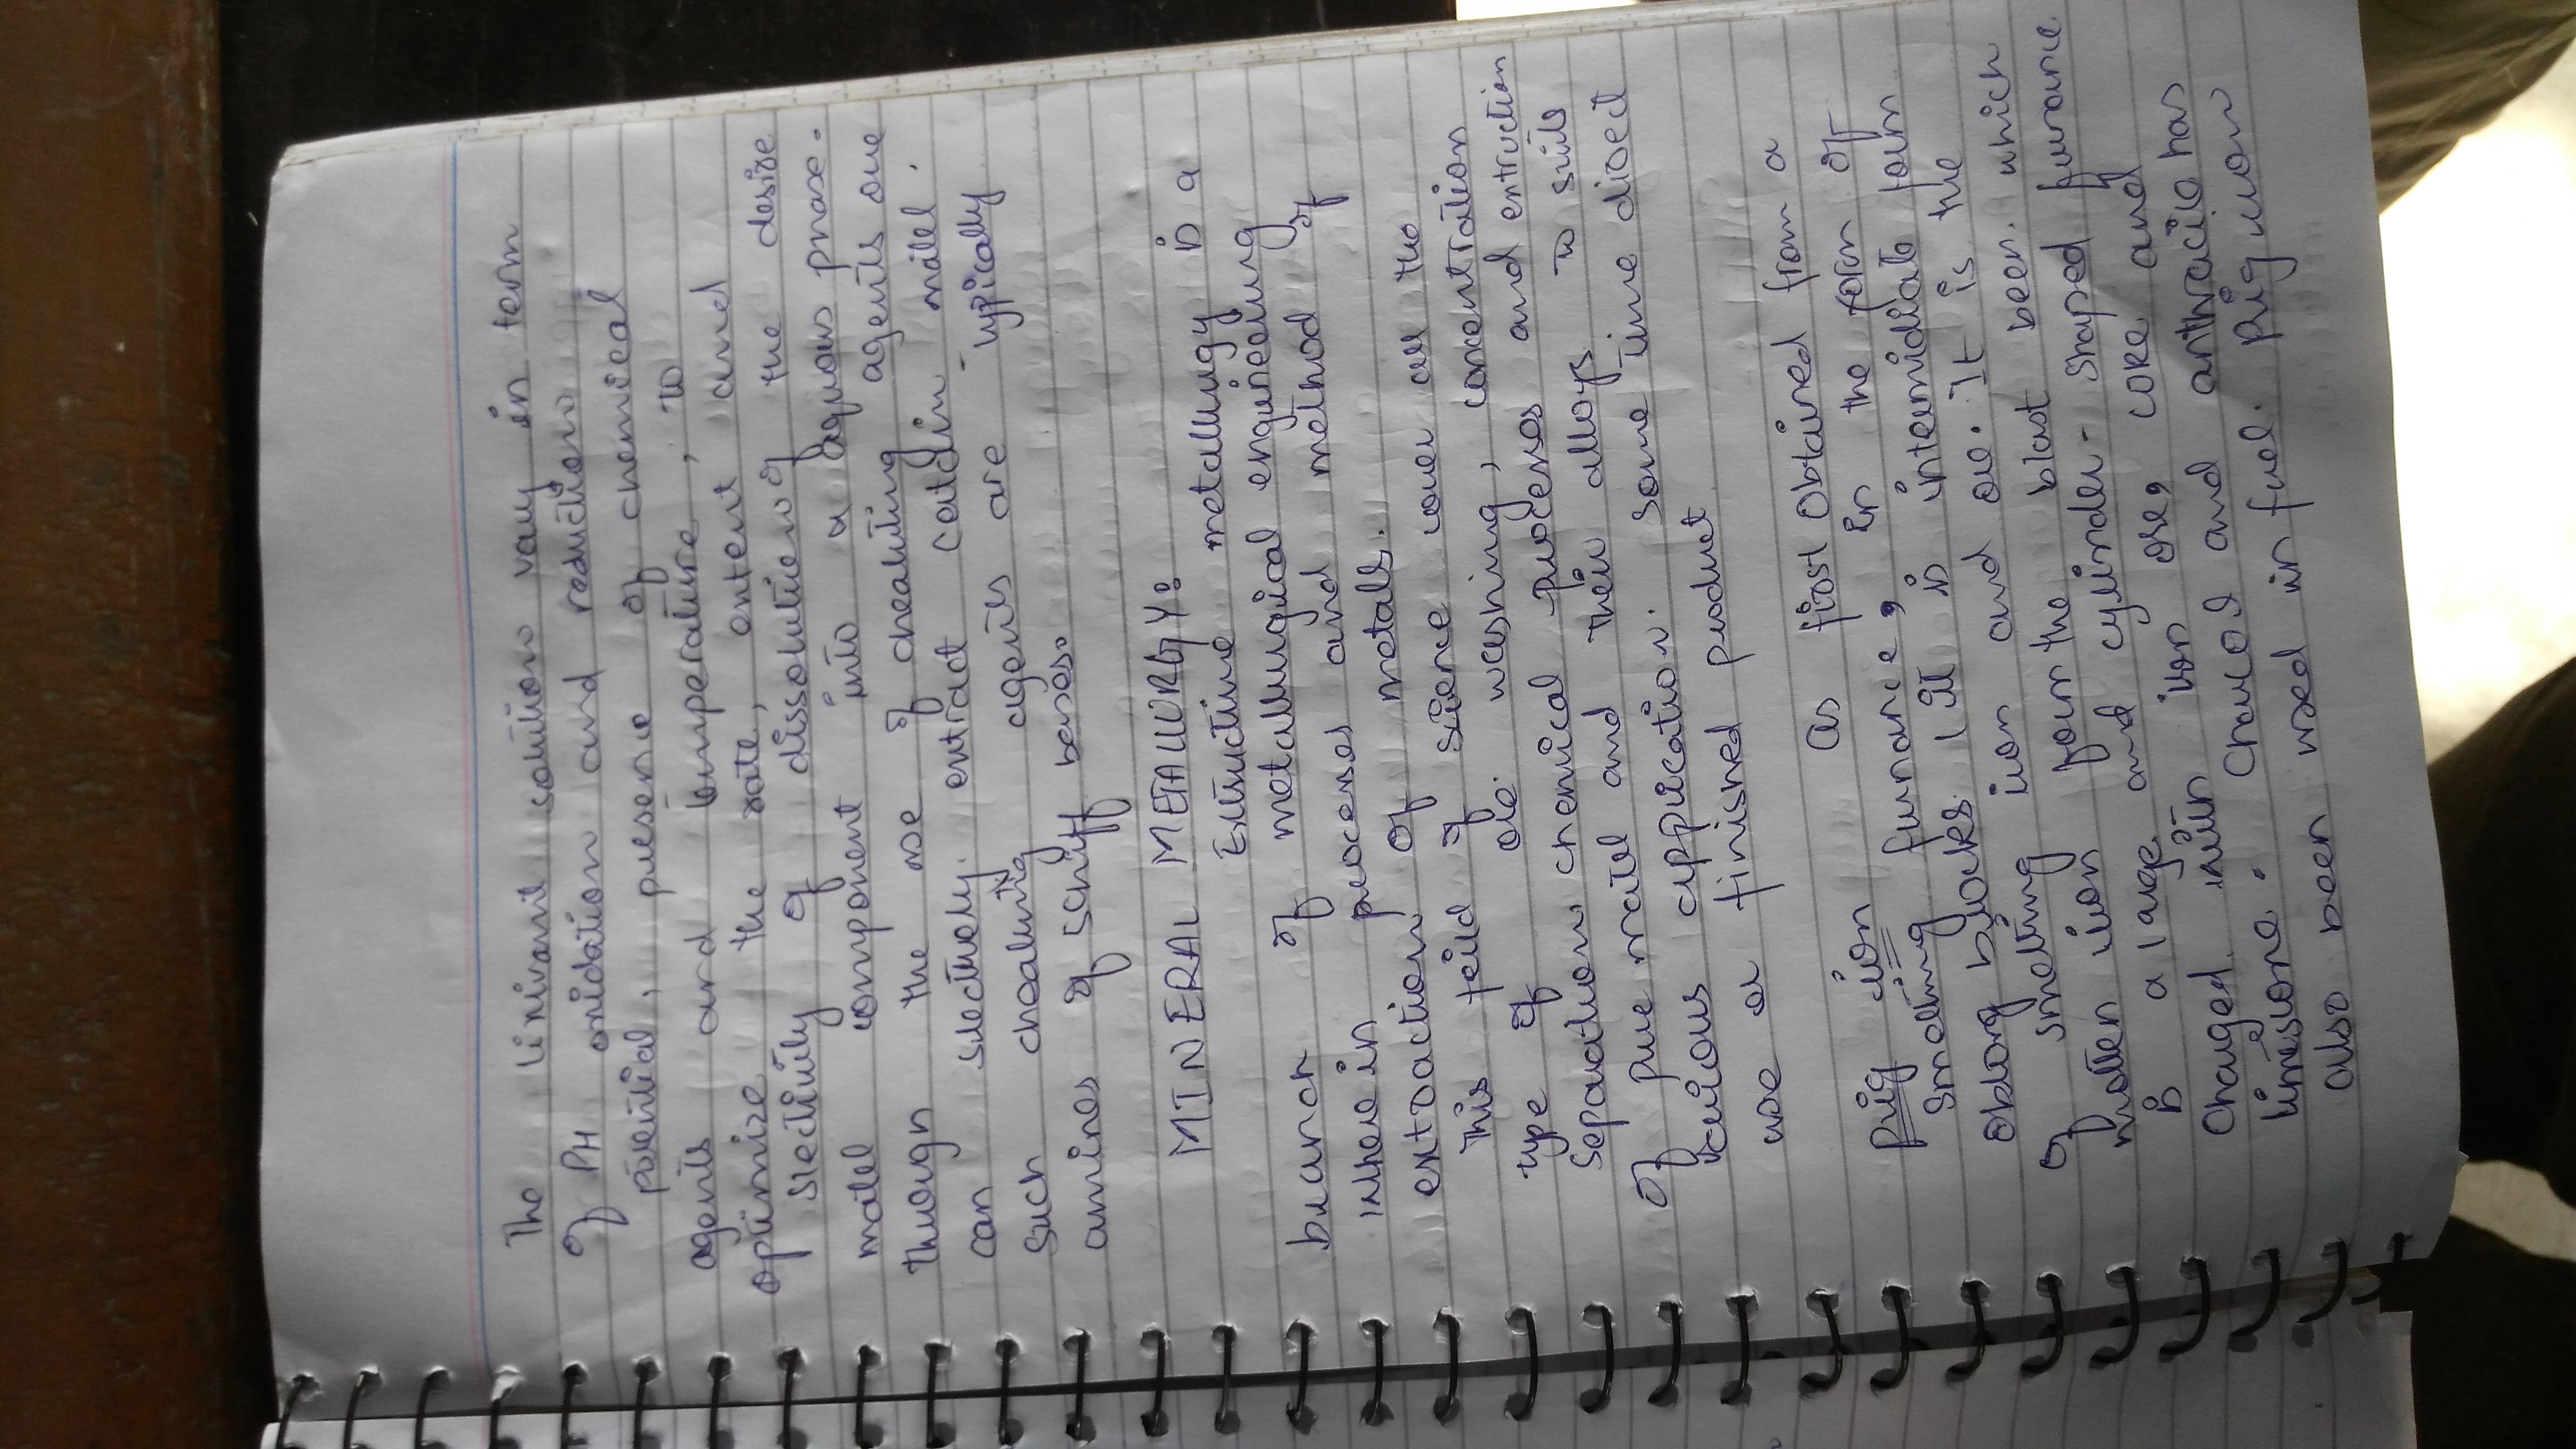 The lixiviant solution vary in term
of PH oxidation and reduction
potential, presence of chemical
agents and temperature, to
optimize the rate, extent and
slectivity of dissolution of the desire
matel component into a aquous phase.
through the use of chealting agents one
can slectively extract certain matel.
Such chealting agents are typically
amines of schiff bases.
MINERAL METALLURGY:
Extractive metallurgy is a
branch of metallurgical engineering
inhere in processes and method of
extraction of metals.
This feild of science cover all the
type of ore. washing, concentration
separation, chemical processes and extraction
of pure matel and their alloys to suit
various application. Some time disect
use as finished product
Pig iron as first obtained from a
Smelting furnance, in the form of
oblong blocks. It is intermidiate form
of smelting iron and ore. It is the
molten iron from the blast been. which
is a large and cylinder-shaped furnance
Charged with iron ore, coke and
limestone. Charcol and anthracite has
also been used in fuel. Pig iron